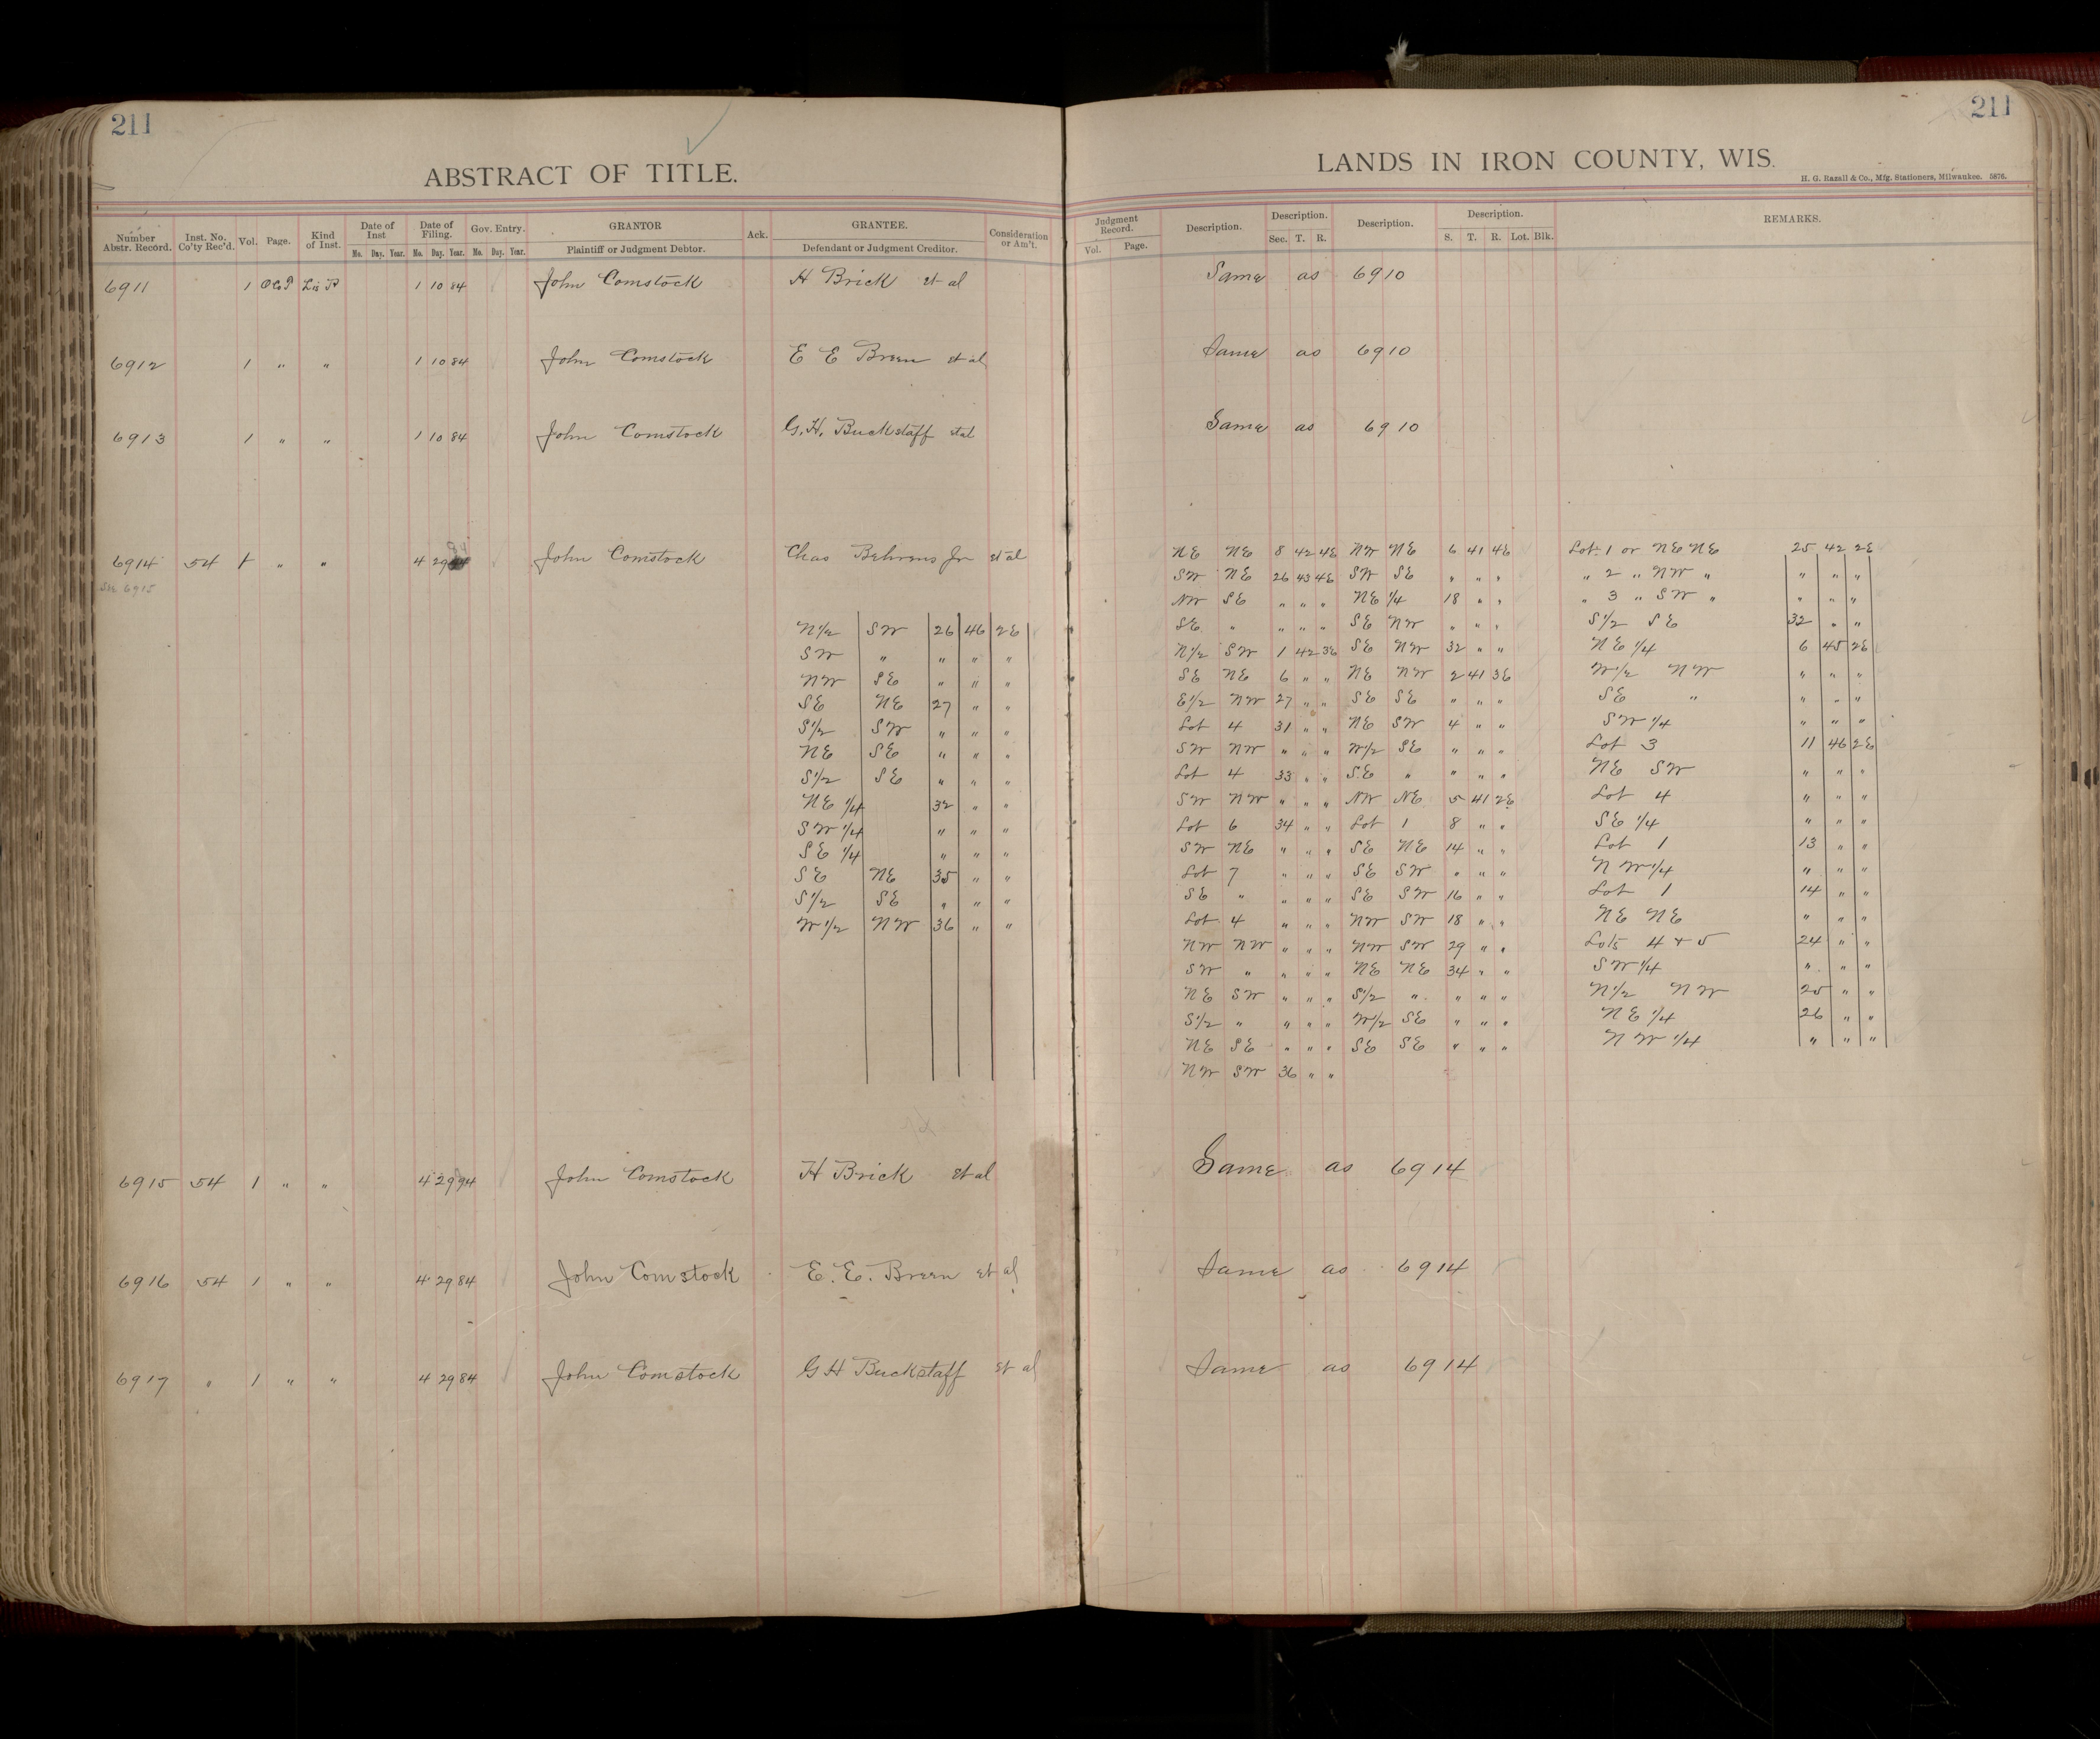 211
211
ABSTRACT OF TITLE.
LANDS IN IRON COUNTY, WIS.
H. G. Razall & Co., Mfg. Stationers, Milwaukee. 5876.
Number Abstr. Record. Inst. No. Co'ty Rec'd. Vol. Page. Kind of Inst. Date of Inst Date of Filing. Gov. Entry. GRANTOR Ack. GRANTEE. Consideration or Am't. Judgment Record. Description. Description. Description. Description. REMARKS.
Mo. Day. Year. Mo. Day. Year. Mo. Day. Year. Plaintiff or Judgment Debtor. Defendant or Judgment Creditor. Vol. Page. Sec. T. R. S. T. R. Lot. Blk.
6911 1 Lis P 1 10 84 John Comstock H Brick et al Same as 6910
6912 1 " " 1 10 84 John Comstock E E Breen et al Same as 6910
6913 1 " " 1 10 84 John Comstock G. H. Buckstaff et al Same as 6910
6914 54 1 " " 4 29 John Comstock Chas Behrens Jr et al
See 6915
N1/2 SW 26 46 2E
SW " " " "
NW SE " " "
SE NE 27 " "
S1/2 SW " " "
NE SE " " "
S1/2 SE " " "
NE 1/4 32 " "
SW 1/4 " " "
SE 1/4 " " "
SE NE 35 " "
S1/2 SE " " "
W1/2 NW 36 " "
NE NE 8 42 4E NW NE 6 41 4E Lot 1 or NE NE 25 42 2E
SW NE 26 43 4E SW SE " " " " 2 " NW " " " "
NW SE " " " NE 1/4 18 " " " 3 " SW " " " "
SE " " " " SE NW " " " S1/2 SE 32 " "
N1/2 SW 1 42 3E SE NW 32 " " NE 1/4 6 45 2E
SE NE 6 " " NE NW 2 41 3E W1/2 NW " " "
E1/2 NW 27 " " SE SE " " " SE " " " "
Lot 4 31 " " NE SW 4 " " SW 1/4 " " "
SW NW " " " W1/2 SE " " " Lot 3 11 46 2E
Lot 4 33 " " SE " " " " NE SW " " "
SW NW " " " NW NE 5 41 2E Lot 4 " " "
Lot 6 34 " " Lot 1 8 " " SE 1/4 " " "
SW NE " " " SE NE 14 " " Lot 1 13 " "
Lot 7 " " " SE SW " " " NW 1/4 " " "
SE " " " " SE SW 16 " " Lot 1 14 " "
Lot 4 " " " NW SW 18 " " NE NE " " "
NW NW " " " NW SW 29 " " Lots 4 + 5 24 " "
SW " " " " NE NE 34 " " SW 1/4 " " "
NE SW " " " S1/2 " " " " N1/2 NW 25 " "
S1/2 " " " " W1/2 SE " " " NE 1/4 26 " "
NE SE " " " SE SE " " " NW 1/4 " " "
NW SW 36 " "
6915 54 1 " " 4 29 John Comstock H Brick et al Same as 6914
6916 54 1 " " 4 29 84 John Comstock E. E. Breen et al Same as 6914
6917 " 1 " " 4 29 84 John Comstock G H Buckstaff et al Same as 6914